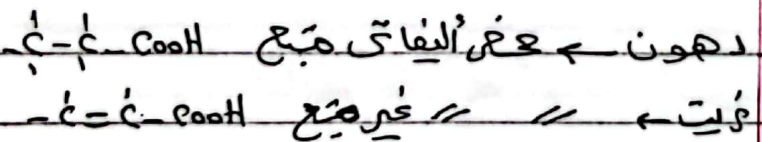 دهون ← حمض أليفاتي مشبع -C-C-COOH
زيت ← // // غير مشبع -C=C-COOH